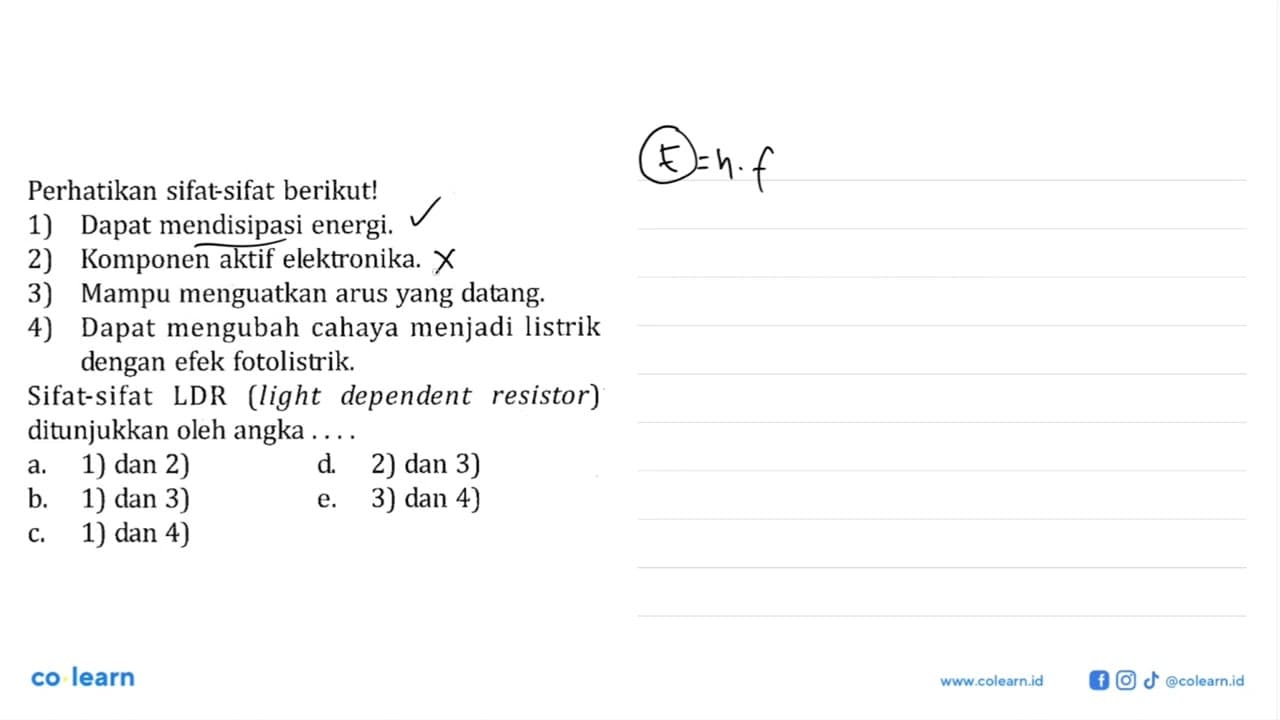 E = h . f
Perhatikan sifat-sifat berikut!
1) Dapat mendisipasi energi. ✓
2) Komponen aktif elektronika. X
3) Mampu menguatkan arus yang datang.
4) Dapat mengubah cahaya menjadi listrik
dengan efek fotolistrik.
Sifat-sifat LDR (light dependent resistor)
ditunjukkan oleh angka ....
a. 1) dan 2) d. 2) dan 3)
b. 1) dan 3) e. 3) dan 4)
c. 1) dan 4)
co learn www.colearn.id @colearn.id